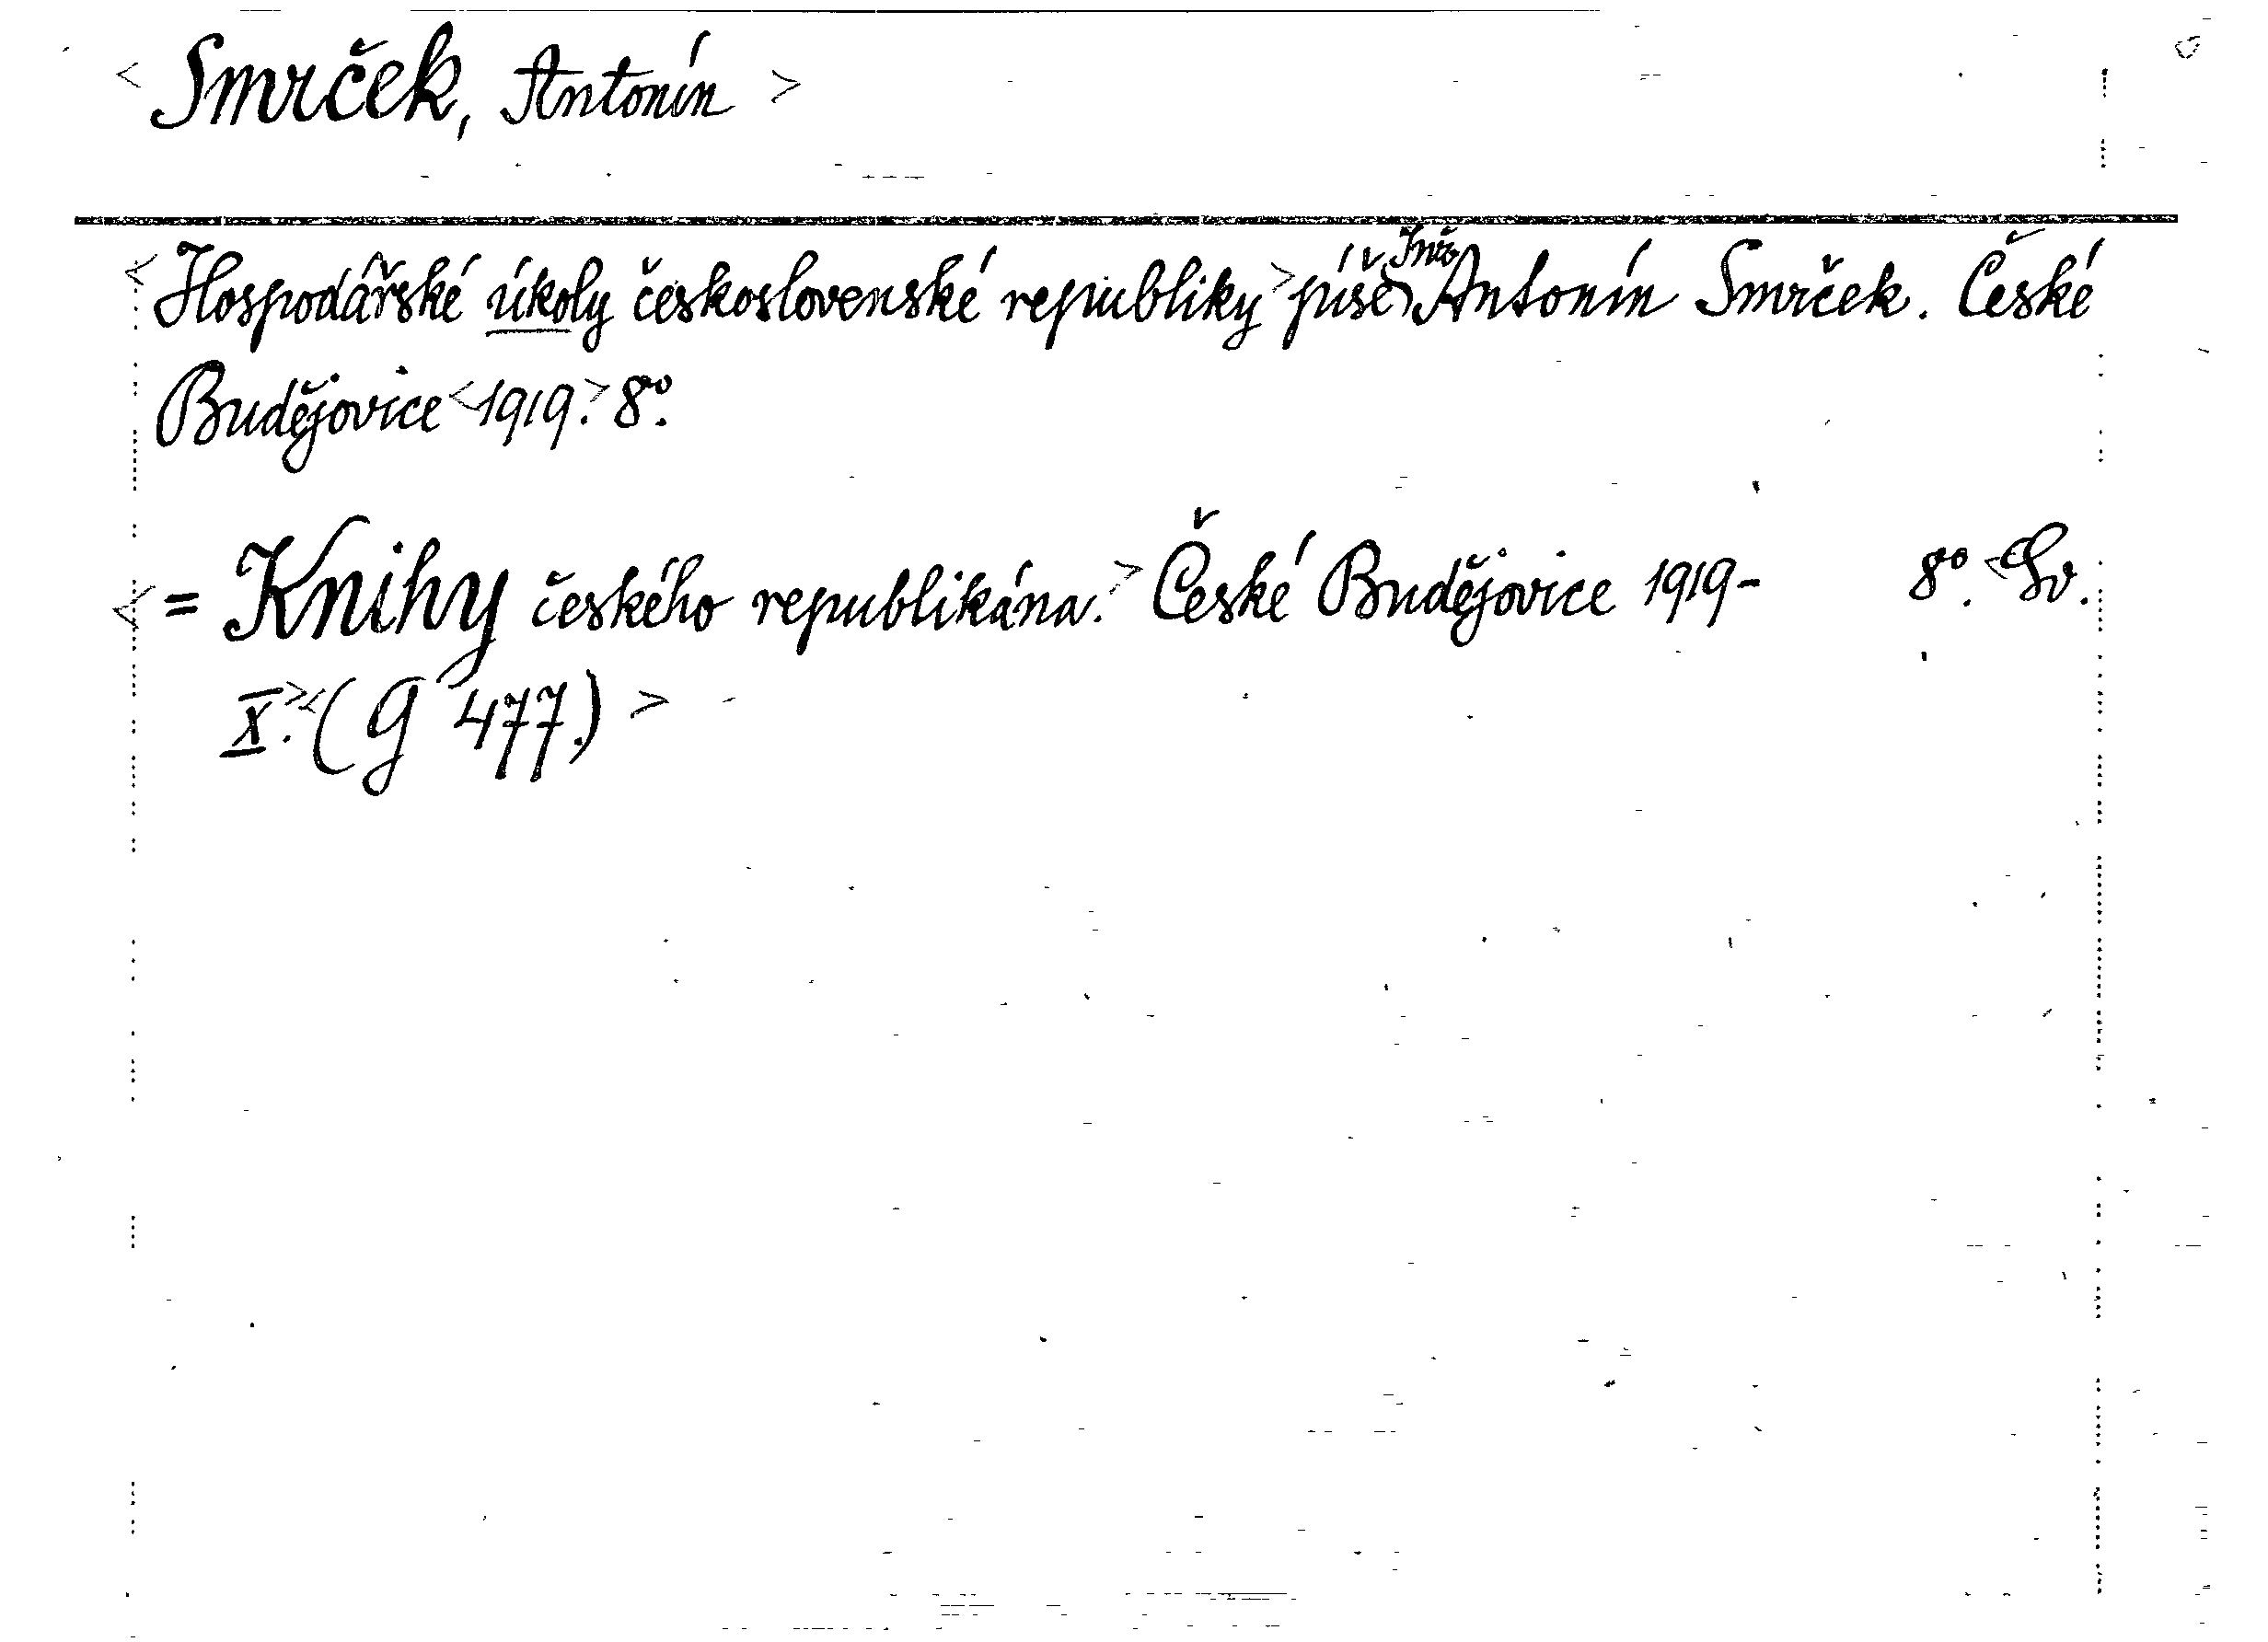 < Smrček, Antonín >
< Hospodářské úkoly československé republiky > píše Antonín Smrček. České
Budějovice < 1919. > 8°.
< = Knihy českého republikána. > České Budějovice 1919- 8°. < Sv.
X. > < (G 477.) >